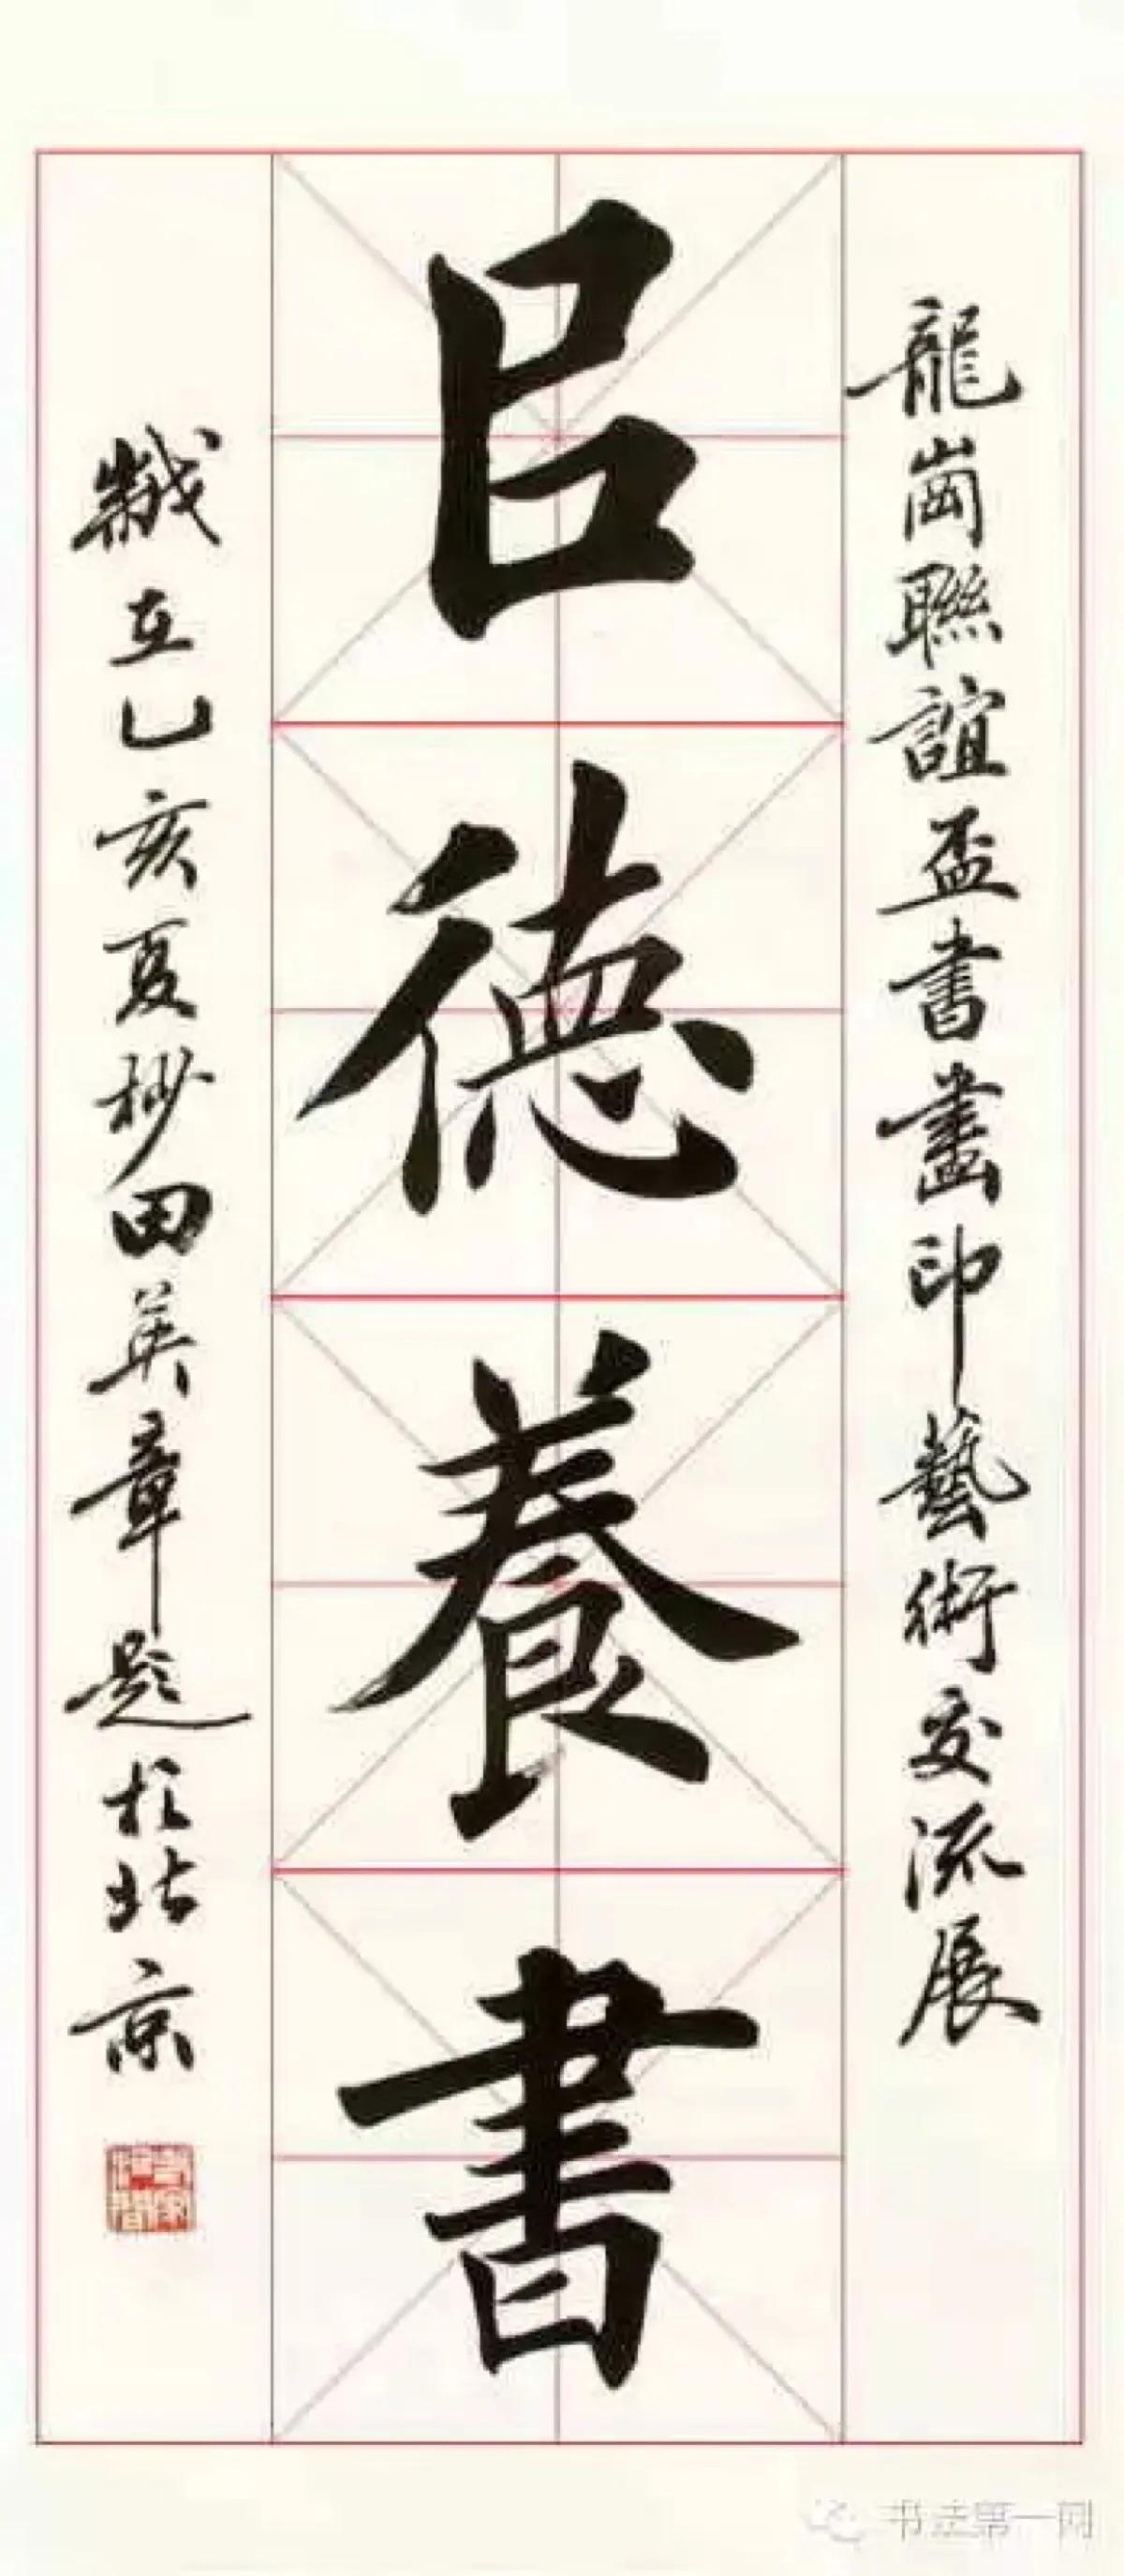 龍崗聯誼盃書畫印藝術交流展
㠯德養書
歲在乙亥夏杪田英章題於北京
书法第一网